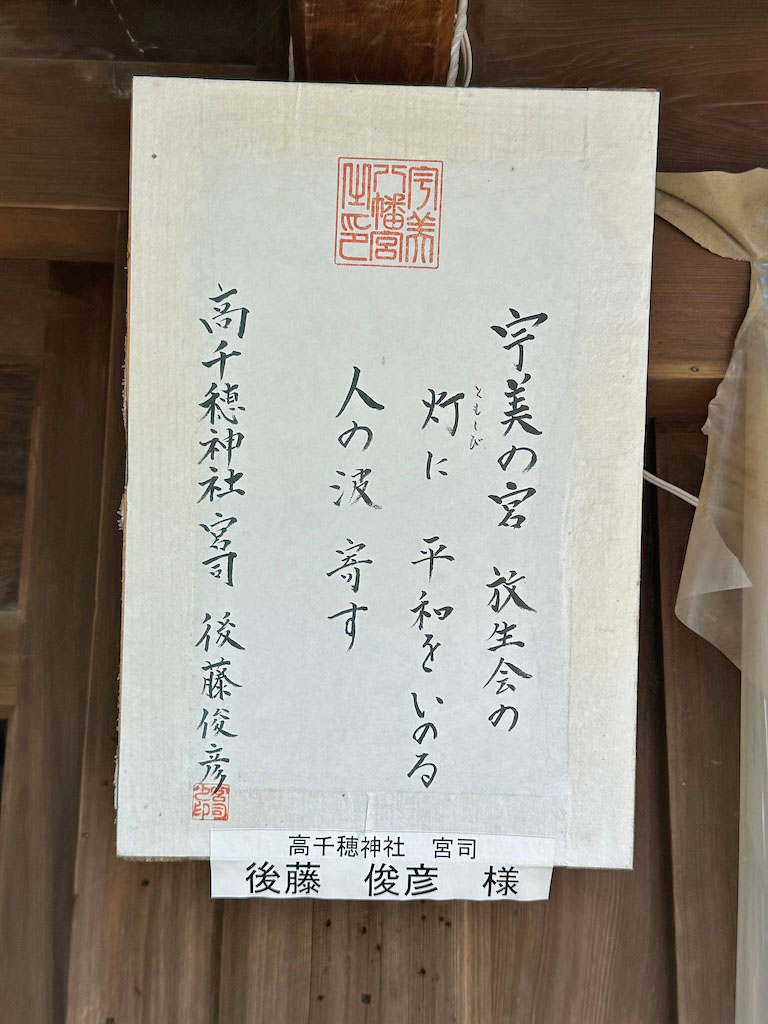 宇美八幡宮之印
宇美の宮 放生会の
灯に 平和をいのる
ともしび
人の波 寄す
高千穂神社 宮司 後藤俊彦
宮司之印
高千穂神社 宮司
後藤 俊彦 様